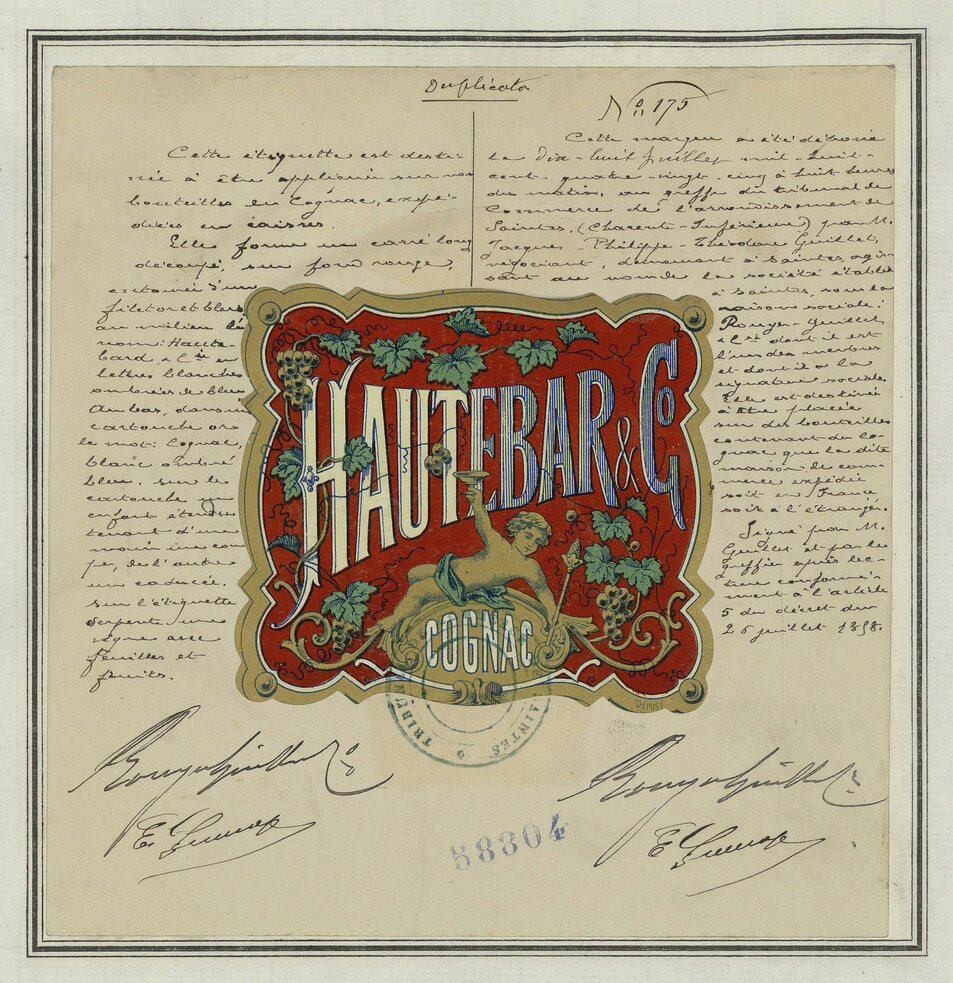 Duplicata
N° 175
Cette étiquette est desti-
née à être appliquée sur nos
bouteilles de Cognac, expé-
diées en caisses.
Elle forme un carré long
découpé, sur fond rouge,
entouré d'un
filet or et bleu
au milieu le
nom: Haute-
bard & Cie en
lettres blanches
ombrées de bleu
Au bas, dans un
cartouche or
le mot: Cognac,
blanc ombré
bleu, sur le
cartouche un
enfant étendu
tenant d'une
main une cou-
pe, de l'autre
un caducée,
sur l'étiquette
serpente une
vigne avec
feuilles et
fruits.
Cette marque a été déposée
le dix-huit juillet mil-huit-
cent-quatre-vingt-cinq à huit heures
du matin, au greffe du tribunal de
Commerce de l'arrondissement de
Saintes, (Charente-Inférieure) par M.
Jacques-Philippe-Théodore Guillet,
négociant, demeurant à Saintes, agis-
sant au nom de la société établie
à Saintes, sous la
raison sociale:
Rouyer-Guillet
& Cie dont il est
l'un des membres
et dont il a la
signature sociale.
Elle est destinée
à être placée
sur des bouteilles
contenant du co-
gnac que la dite
maison de com-
merce expédie
soit en France
soit à l'étranger.
Signé par M.
Guillet et par le
greffier après lec-
ture conformé-
ment à l'article
5 du décret du
26 juillet 1858.
HAUTEBAR & Co
COGNAC
DÉPOSÉ
TRIBUN
SAINTES
Rouyer Guillet & Co
Rouyer Guillet & Co
58804